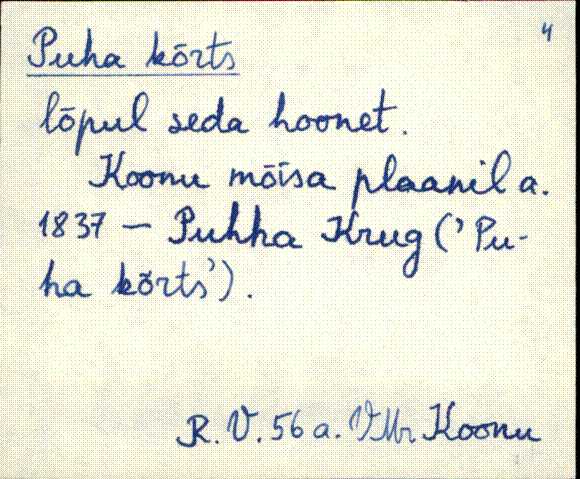 4
Puha kõrts
lõpul seda hoonet.
Koonu mõisa plaanil a.
1837 — Puhha Krug ('Pu-
ha kõrts').
R. V. 56 a. VMr Koonu